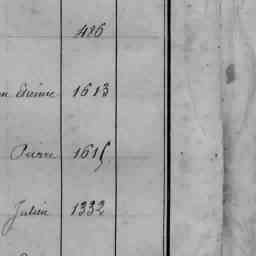 486
Etienne 1613
Pierre 1615
Julien 1332